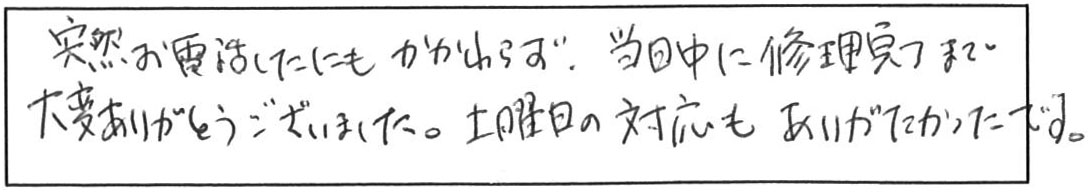 突然お電話したにもかかわらず、当日中に修理完了まで
大変ありがとうございました。土曜日の対応もありがたかったです。